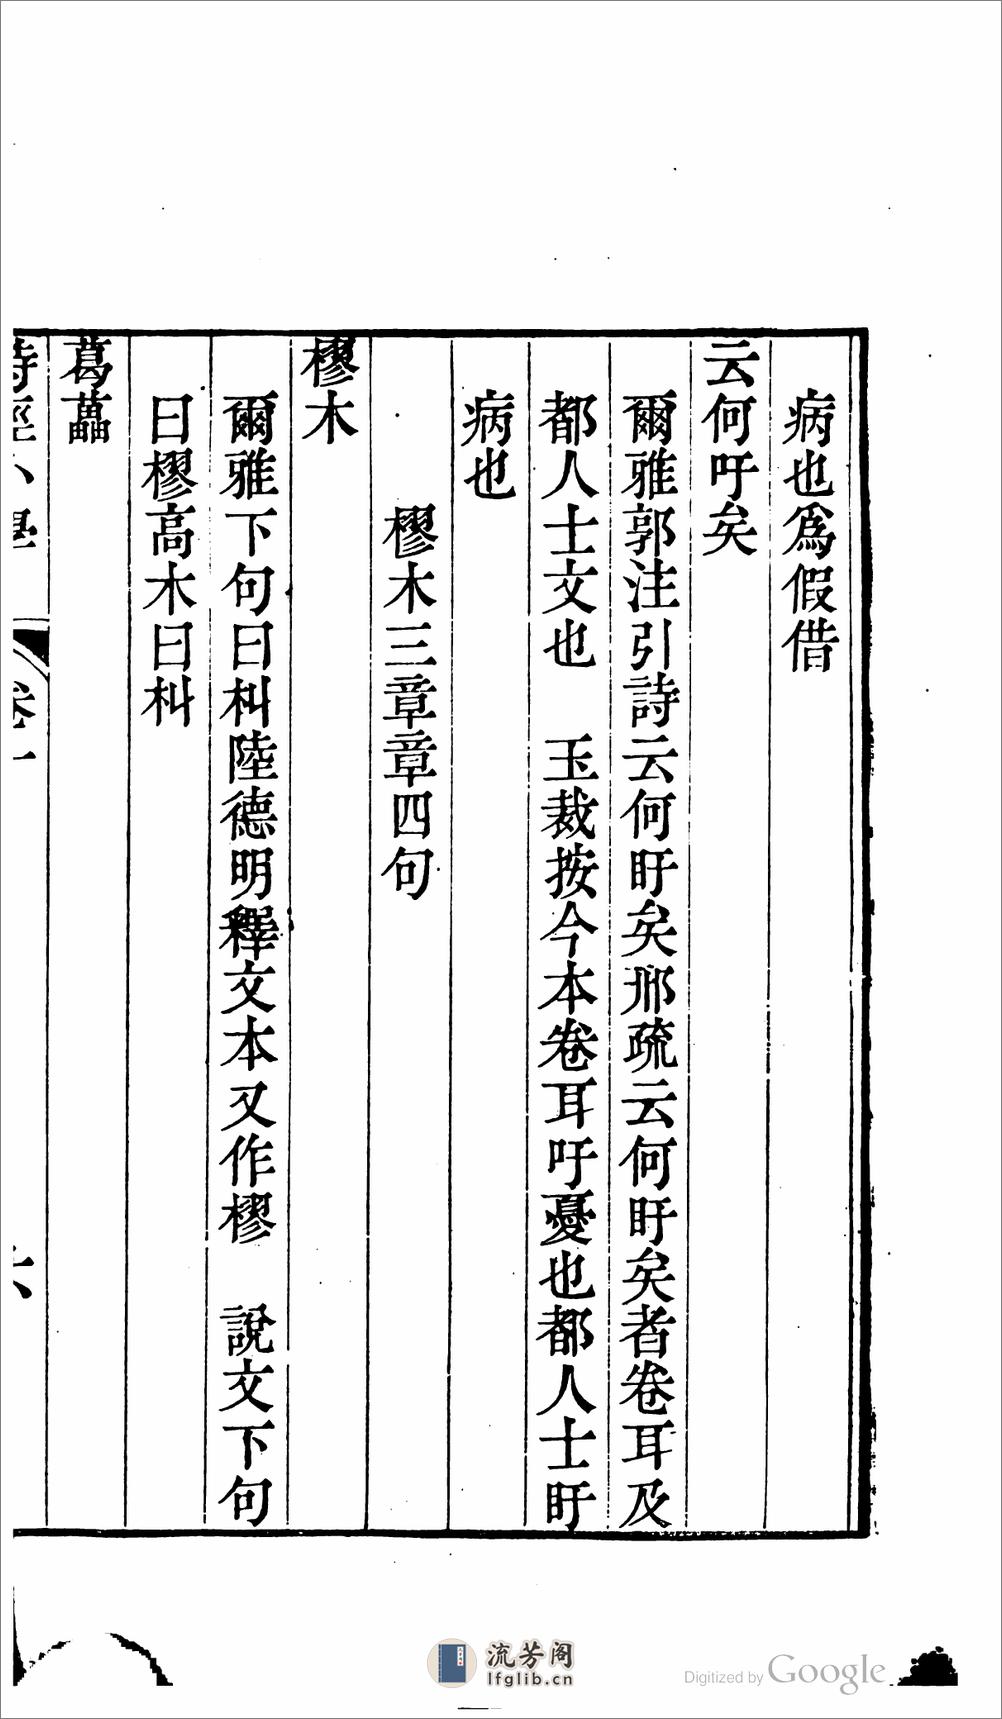 病也爲假借
云何吁矣
爾雅郭注引詩云何盱矣邢疏云何盱矣者卷耳及
都人士文也　玉裁按今本卷耳吁憂也都人士盱
病也
樛木三章章四句
樛木
爾雅下句曰朻陸德明釋文本又作樛　說文下句
曰樛高木曰朻
葛藟
詩經小學
卷一
六
流芳阁
lfglib.cn
Digitized by Google